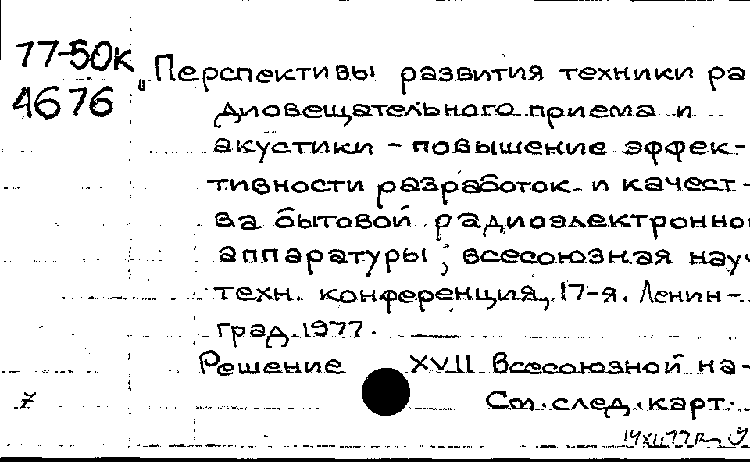 77-50к
4676
"Перспективы развития техники ра
диовещательного приема и
акустики - повышение эффек-
тивности разработок и качест-
ва бытовой радиоэлектронно
аппаратуры", всесоюзная науч
техн. конференция, 17-я. Ленин-
град. 1977.
Решение XVII Всесоюзной на-
7 См. след. карт.
14XII77г.